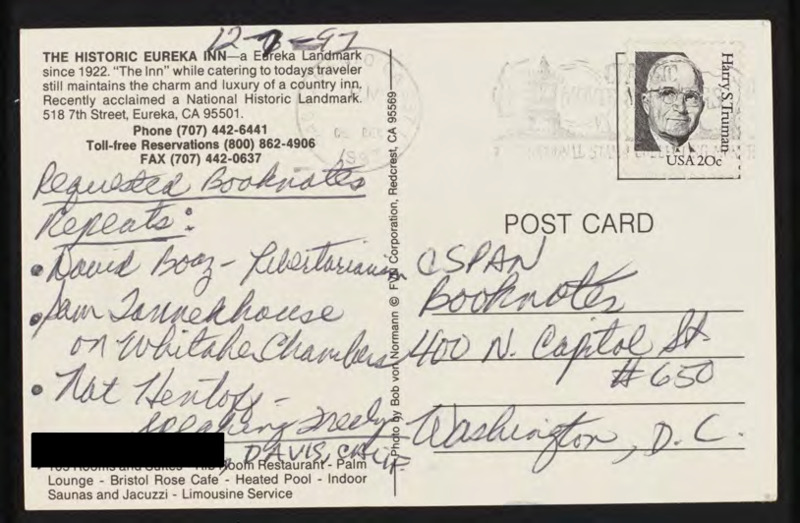 12-8-97
THE HISTORIC EUREKA INN—a Eureka Landmark
since 1922. "The Inn" while catering to todays traveler
still maintains the charm and luxury of a country inn.
Recently acclaimed a National Historic Landmark.
518 7th Street, Eureka, CA 95501.
Phone (707) 442-6441
Toll-free Reservations (800) 862-4906
FAX (707) 442-0637
Requested Booknotes
Repeats:
• David Boaz - Libertarianism
• Sam Tannenhouse
on Whitaker Chambers
• Nat Hentoff -
Speaking Freely
DAVIS, CALIF.
105 Rooms and Suites - Rib Room Restaurant - Palm
Lounge - Bristol Rose Cafe - Heated Pool - Indoor
Saunas and Jacuzzi - Limousine Service
Photo by Bob von Normann © FVN Corporation, Redcrest, CA 95569
Harry S. Truman
USA 20c
POST CARD
CSPAN
Booknotes
400 N. Capitol St
#650
Washington, D.C.